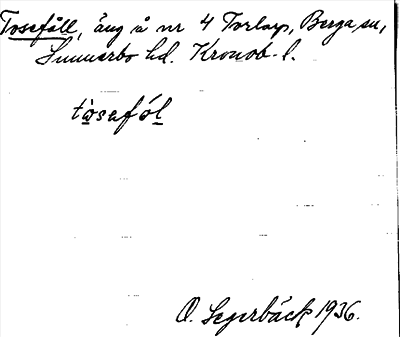 Tosefåll, äng å nr 4 Torlarp, Berga sn,
Sunnerbo hd. Kronob. l.
tòsafól
O. Segerbäck 1936.